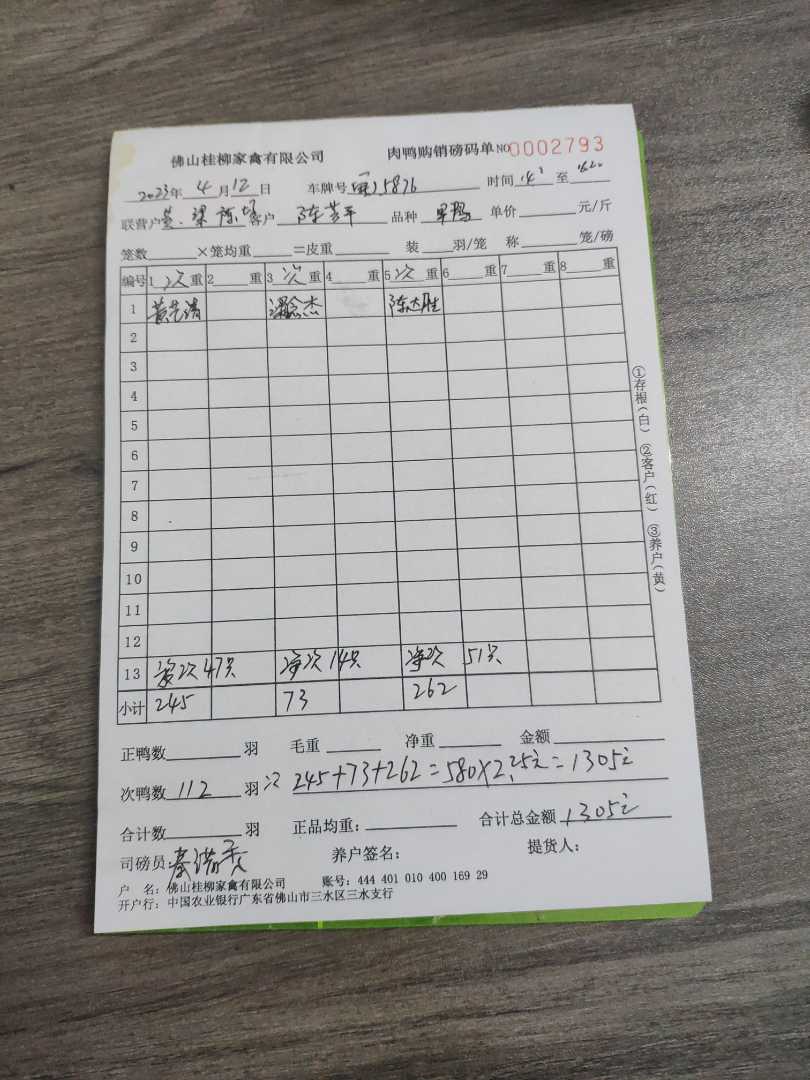 佛山桂柳家禽有限公司 肉鸭购销磅码单 NO 0002793
2023年 4月 12日 车牌号 5876 时间 至
联营户 黄、梁 陈 客户 陈芳平 品种 单价 元/斤
笼数 ×笼均重 =皮重 装 羽/笼 称 笼/磅
编号 1 次 重 2 重 3 次 重 4 重 5 次 重 6 重 7 重 8 重
1 杰 陈达胜
2
3
4
5
6
7
8
9
10
11
12
13 次47只 净次 14只 净次 51只
小计 245 73 262
正鸭数 羽 毛重 净重 金额
次鸭数 112 羽 次 245+73+262=580×2.25元=1305元
合计数 羽 正品均重: 合计总金额 1305元
司磅员: 养户签名: 提货人:
户 名: 佛山桂柳家禽有限公司 账号: 444 401 010 400 169 29
开户行: 中国农业银行广东省佛山市三水区三水支行
①存根(白) ②客户(红) ③养户(黄)